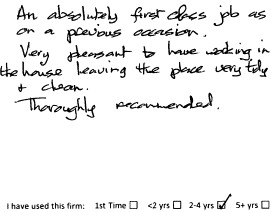 An absolutely first class job as
on a previous occasion.
Very pleasant to have working in
the house leaving the place very tidy
& clean.
Thoroughly recommended.
I have used this firm: 1st Time ☐ <2 yrs ☐ 2-4 yrs ☑ 5+ yrs ☐